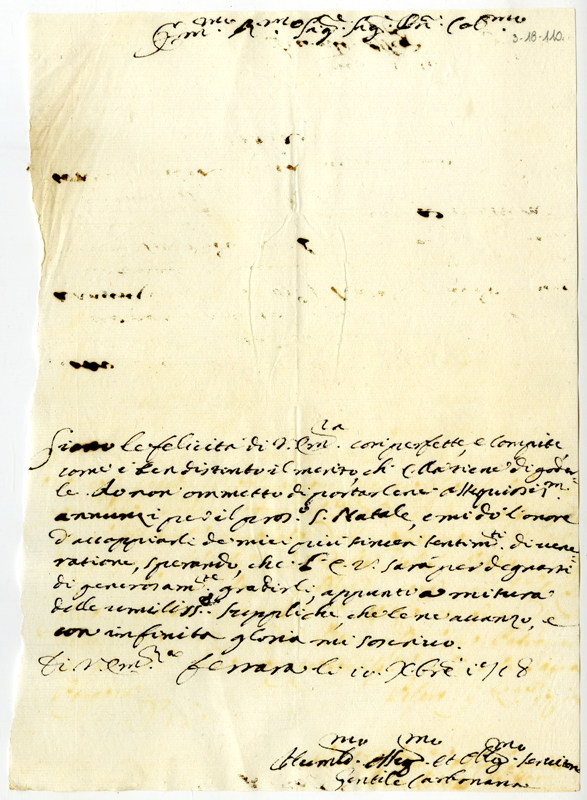 Em.mo R.mo Sig.r Sig.r P.ron Col.mo
3-18-110.
Siano le felicità di V. Em.za così perfette, e compite
come è ben distinto il merito, ch'Ella tiene di goder=
le. Io non ommetto di portarlene ossequiosis.mi
annunzi per il pros.o S. Natale, e mi dò l'onore
d'accoppiarli de miei più sinceri sentim.ti di vene=
ratione, sperando, che l'E. V. sarà per degnarsi
di generosam.te gradirli, appunto a misura
delle umiliss.e suppliche, che le ne avanzo, e
con infinita gloria mi soscrivo.
Di V. Em.za Ferrara li 10 Xbre 1718
Humil.mo Osseq.mo et Oblig.mo Servitore
Gentile Carbonara